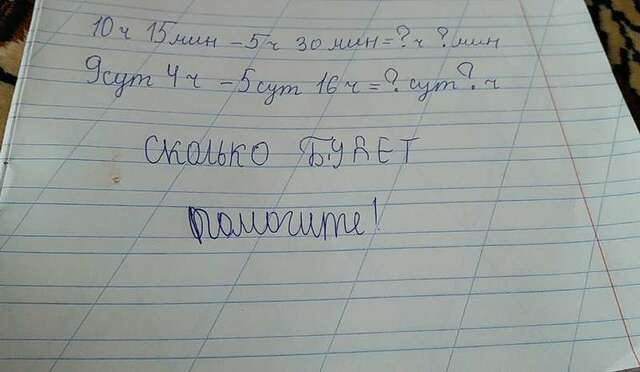 10 ч 15 мин - 5 ч 30 мин = ? ч ? мин
9 сут 4 ч - 5 сут 16 ч = ? сут ? ч
СКОЛЬКО БУДЕТ
помогите!